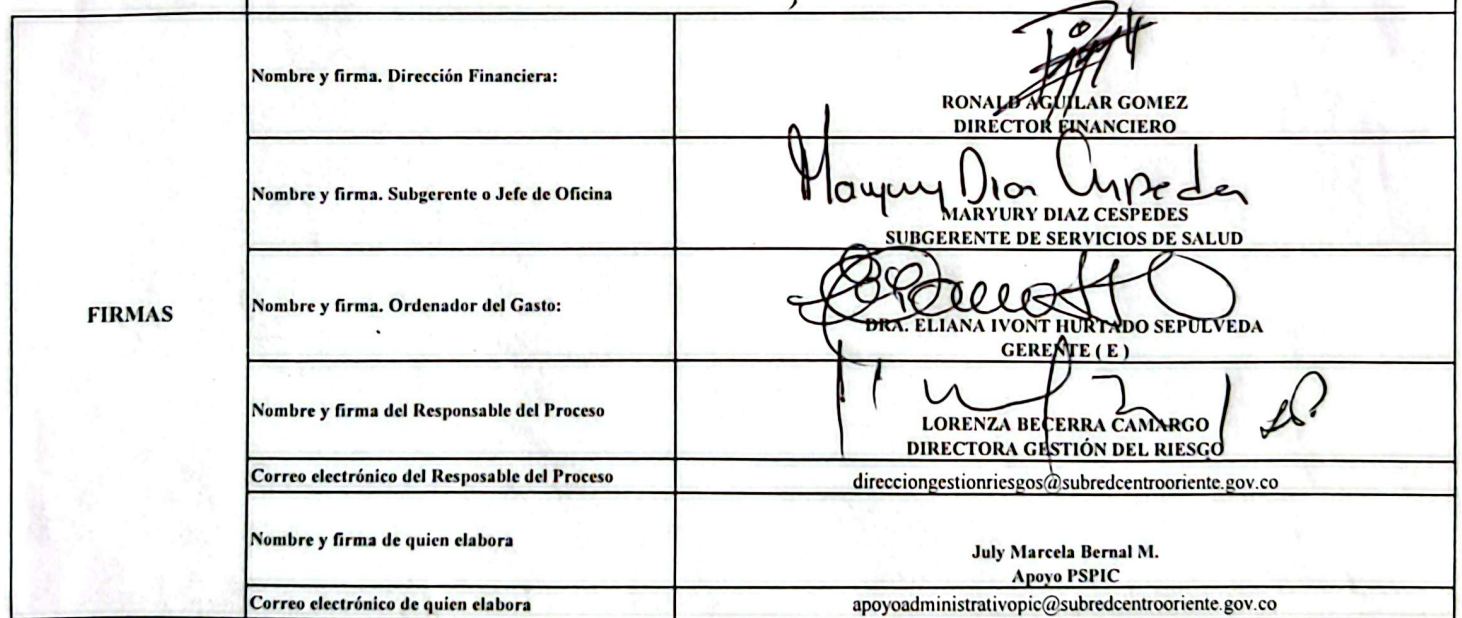 FIRMAS
Nombre y firma. Dirección Financiera:
RONALD AGUILAR GOMEZ
DIRECTOR FINANCIERO
Nombre y firma. Subgerente o Jefe de Oficina
Maryury Diaz Cespedes
MARYURY DIAZ CESPEDES
SUBGERENTE DE SERVICIOS DE SALUD
Nombre y firma. Ordenador del Gasto:
DRA. ELIANA IVONT HURTADO SEPULVEDA
GERENTE ( E )
Nombre y firma del Responsable del Proceso
LORENZA BECERRA CAMARGO
DIRECTORA GESTIÓN DEL RIESGO
Correo electrónico del Resposable del Proceso
direcciongestionriesgos@subredcentrooriente.gov.co
Nombre y firma de quien elabora
July Marcela Bernal M.
Apoyo PSPIC
Correo electrónico de quien elabora
apoyoadministrativopic@subredcentrooriente.gov.co